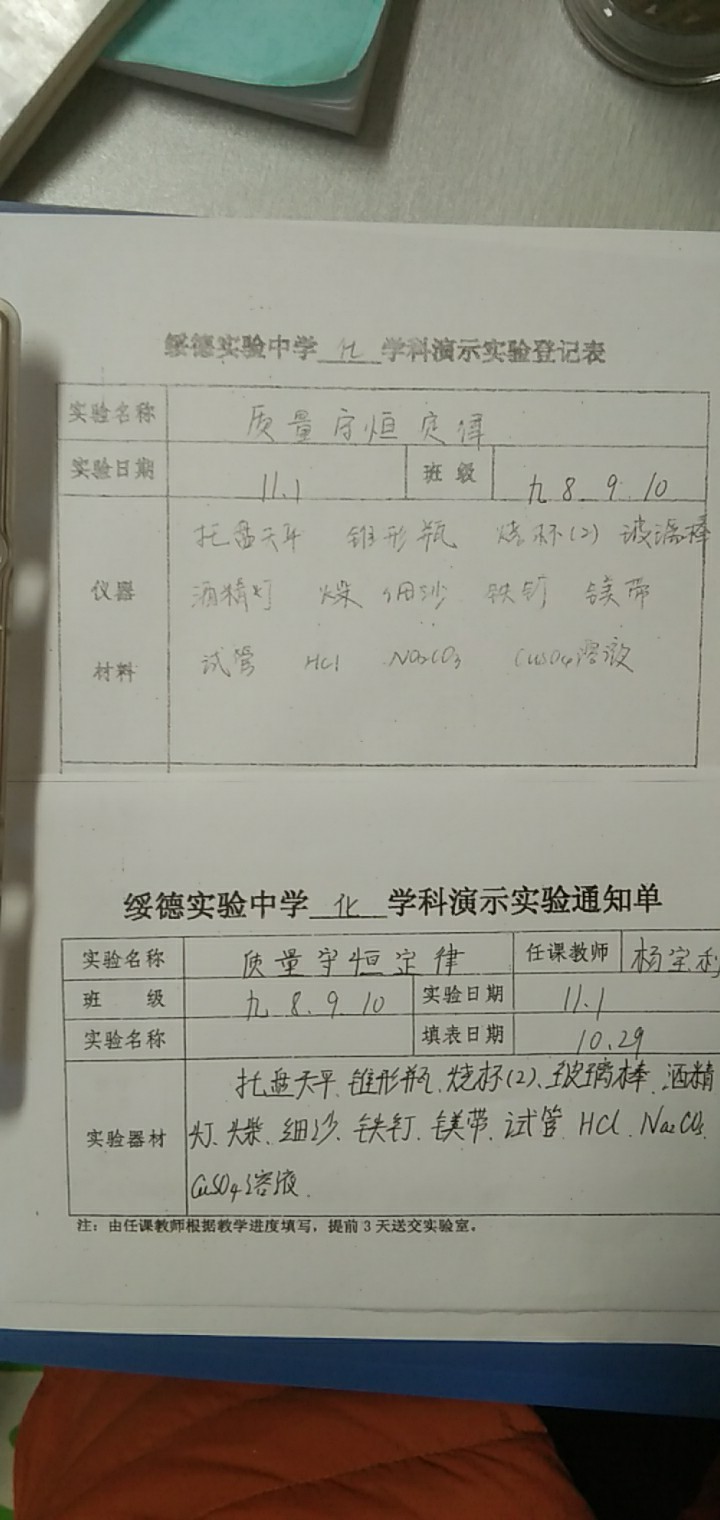 绥德实验中学 化 学科演示实验登记表
实验名称 质量守恒定律
实验日期 11.1 班级 九 8.9.10
托盘天平 锥形瓶 烧杯(2) 玻璃棒
仪器 酒精灯 细沙 铁钉 镁带
材料 试管 HCl Na2CO3 CuSO4溶液
绥德实验中学 化 学科演示实验通知单
实验名称 质量守恒定律 任课教师 杨宝利
班 级 九 8.9.10 实验日期 11.1
实验名称 填表日期 10.29
托盘天平、锥形瓶、烧杯(2)、玻璃棒、酒精
实验器材 灯、细沙、铁钉、镁带、试管、HCl、Na2CO3
CuSO4溶液.
注：由任课教师根据教学进度填写，提前3天送交实验室。